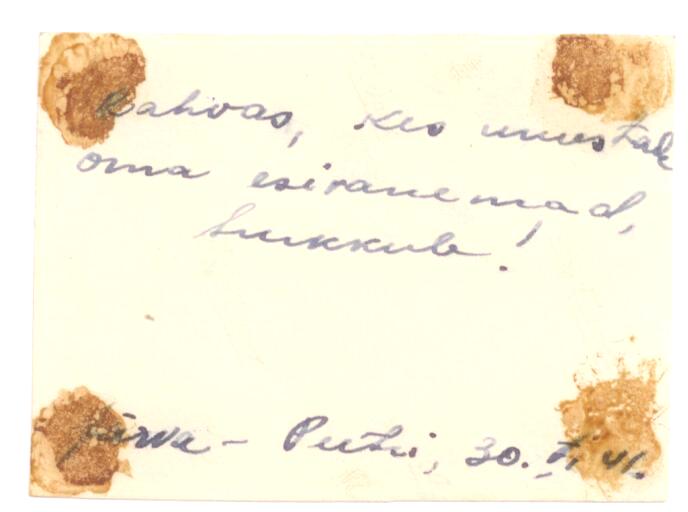 Rahvas, kes unustab
oma esivanemad,
hukkub!
Järva - Peetri, 30.